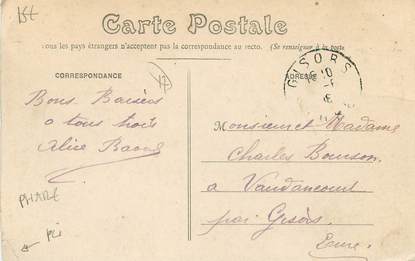 Carte Postale
Tous les pays étrangers n'acceptent pas la correspondance au recto. (Se renseigner à la poste
CORRESPONDANCE
ADRESSE
GISORS
Bons Baisers
a tous trois
Alice
Monsieur et Madame
Charles
a Vaudancourt
par Gisors
Eure.
PHARE